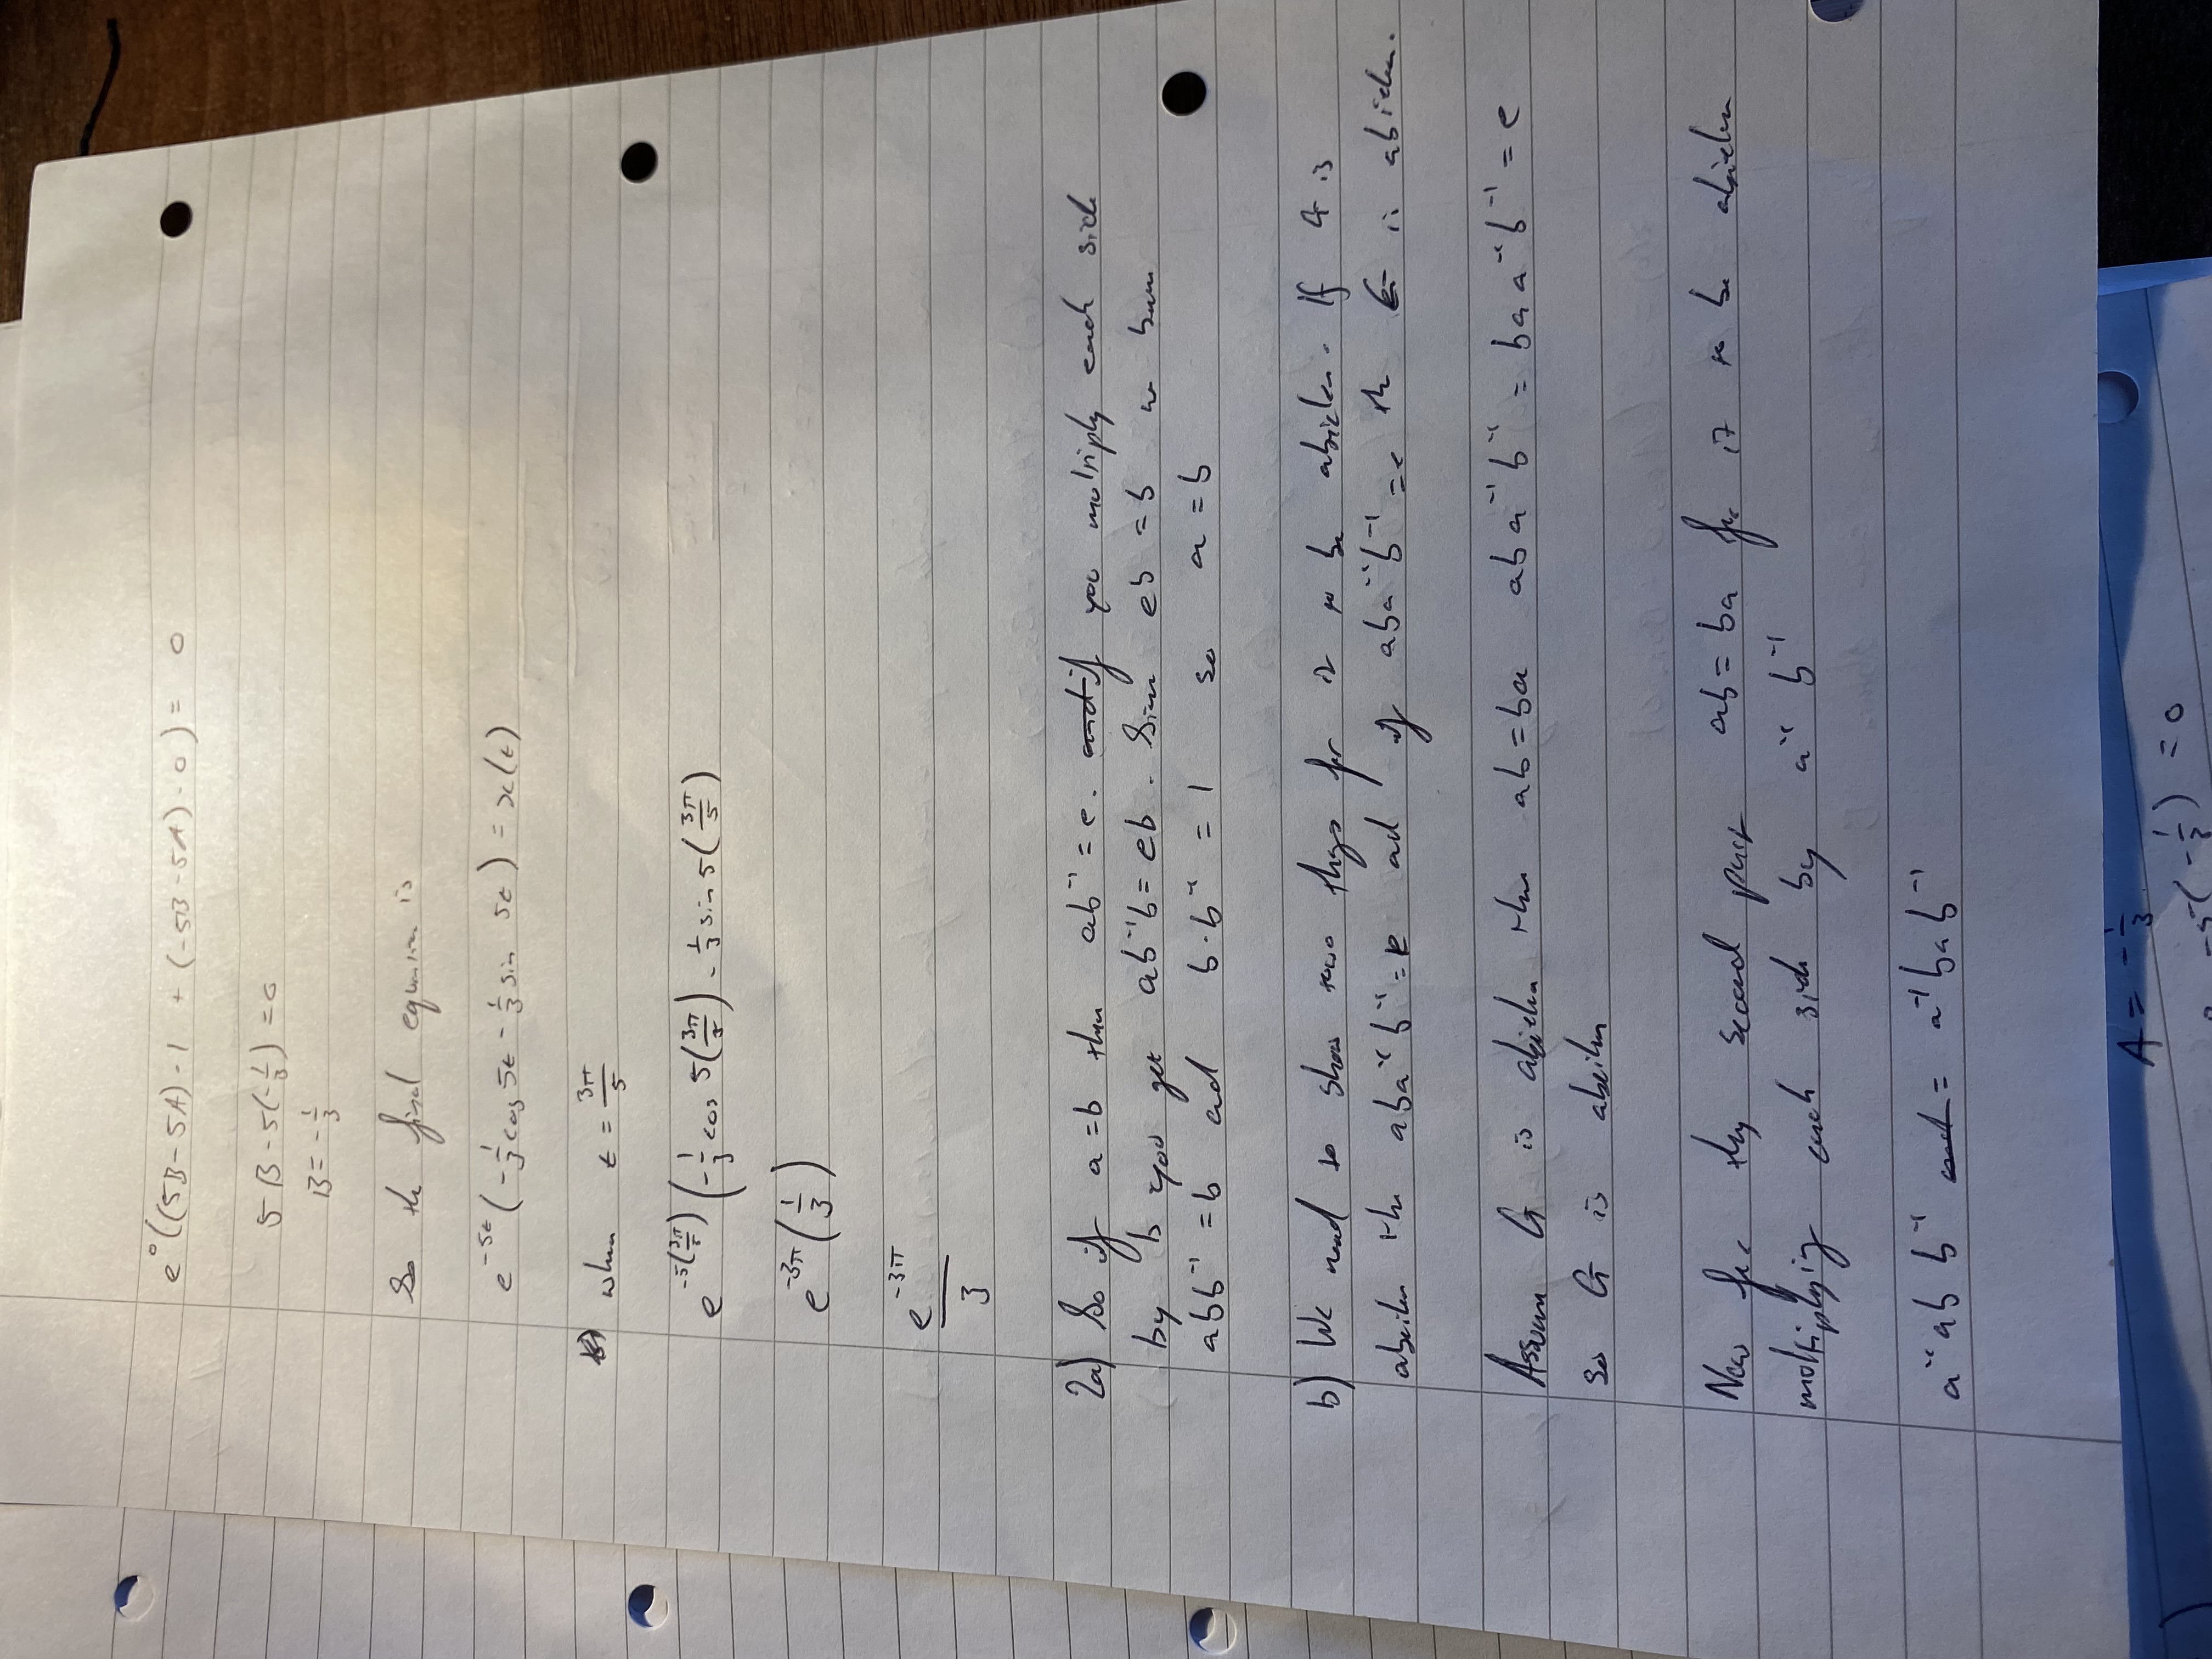 e⁰((5B-5A)·1 + (-5B-5A)·0) = 0
5B-5(-1/3)=0
B=-1/3
So the final equation is
e^-5t(-1/3 cos 5t - 1/3 sin 5t) = x(t)
when t = 3π/5
e^-5(3π/5) (-1/3 cos 5(3π/5) - 1/3 sin 5(3π/5))
e^-3π (1/3)
e^-3π/3
2a) So if a=b then ab⁻¹ = e. and if you multiply each side
by b you get ab⁻¹b = eb. Since eb = b we
abb⁻¹ = b and b·b⁻¹ = 1 so a = b
b) We need to show two things for it to be abielen. If G is
abeilen the aba⁻¹b⁻¹ = e and if aba⁻¹b⁻¹ = e the G is abielen.
Assum G is abielen then ab=ba aba⁻¹b⁻¹ = baa⁻¹b⁻¹ = e
so G is abeilen
Now for the second part ab = ba for it to be abielen
multiplying each side by a⁻¹ b⁻¹
a⁻¹ab b⁻¹ = a⁻¹bab⁻¹
A = -1/3
-5(-1/3) = 0